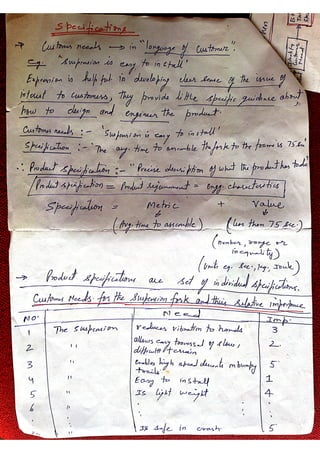 Specifications
→ Customer needs → in "language of customer".
E.g. 'Suspension is easy to install'
Expression is helpful in developing clear sense of the issue of
interest to customers, they provide little specific guidance about
how to design and engineer the product.
Customer needs :- 'Suspension is easy to install'
Specification :- 'The avg. time to assemble the fork to the frame is 75 sec'
∴ Product specification :- "Precise description of what the product has to do"
Product specification = Product requirement = engg characteristics
Specification = Metric + Value
(Avg. time to assemble) (less than 75 sec.)
(number, range or
inequality)
(Units eg. sec., kg, Joule)
→ Product specifications are set of individual specifications.
Customer Needs for the suspension fork and their relative importance
No. Need Imp.
1 The suspension reduces vibration to hands 3
2 " allows easy traversal of slow,
difficult terrain 2
3 " enables high speed descents on bumpy
trails 5
4 " Easy to install 1
5 " Is light weight 4
6 "
" Is safe in crash 5